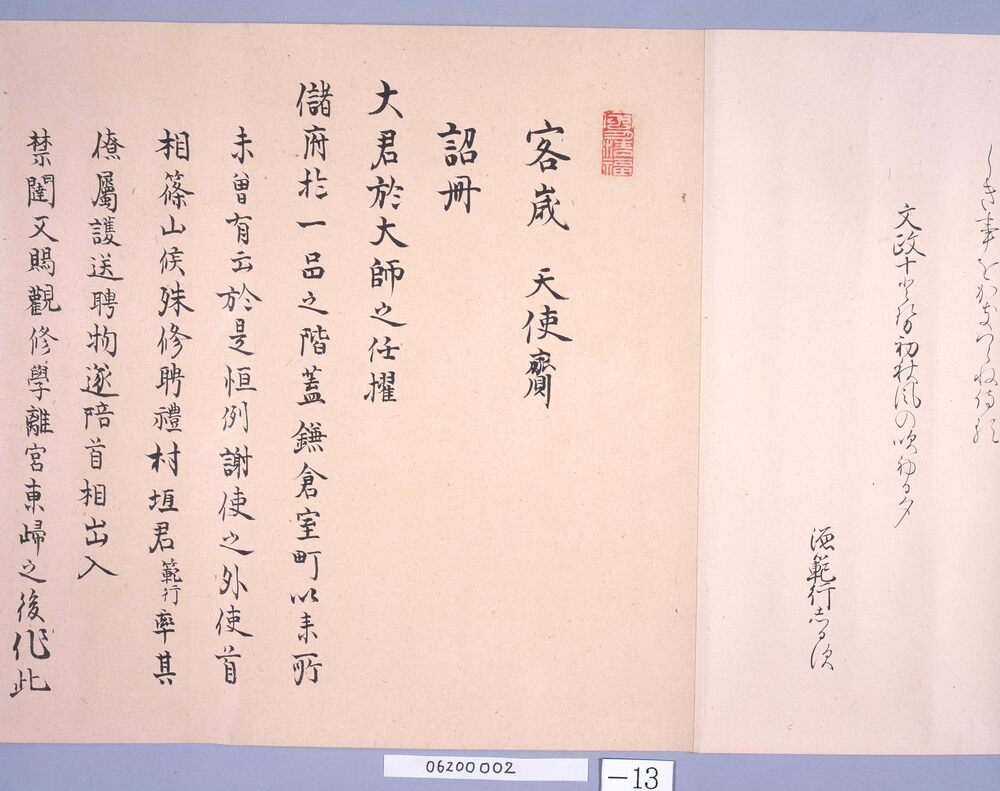 しき事をかきつらね侍る
文政十とせ初秋風の吹ゆる夕
源範行しるす
客歳　天使齎
詔冊
大君於大師之任擢
儲府於一品之階蓋鎌倉室町以来所
未曽有云於是恒例謝使之外使首
相篠山侯殊修聘禮村垣君範行率其
僚屬護送聘物遂陪首相出入
禁闥又賜觀修學離宮東歸之後作此
06200002
—13